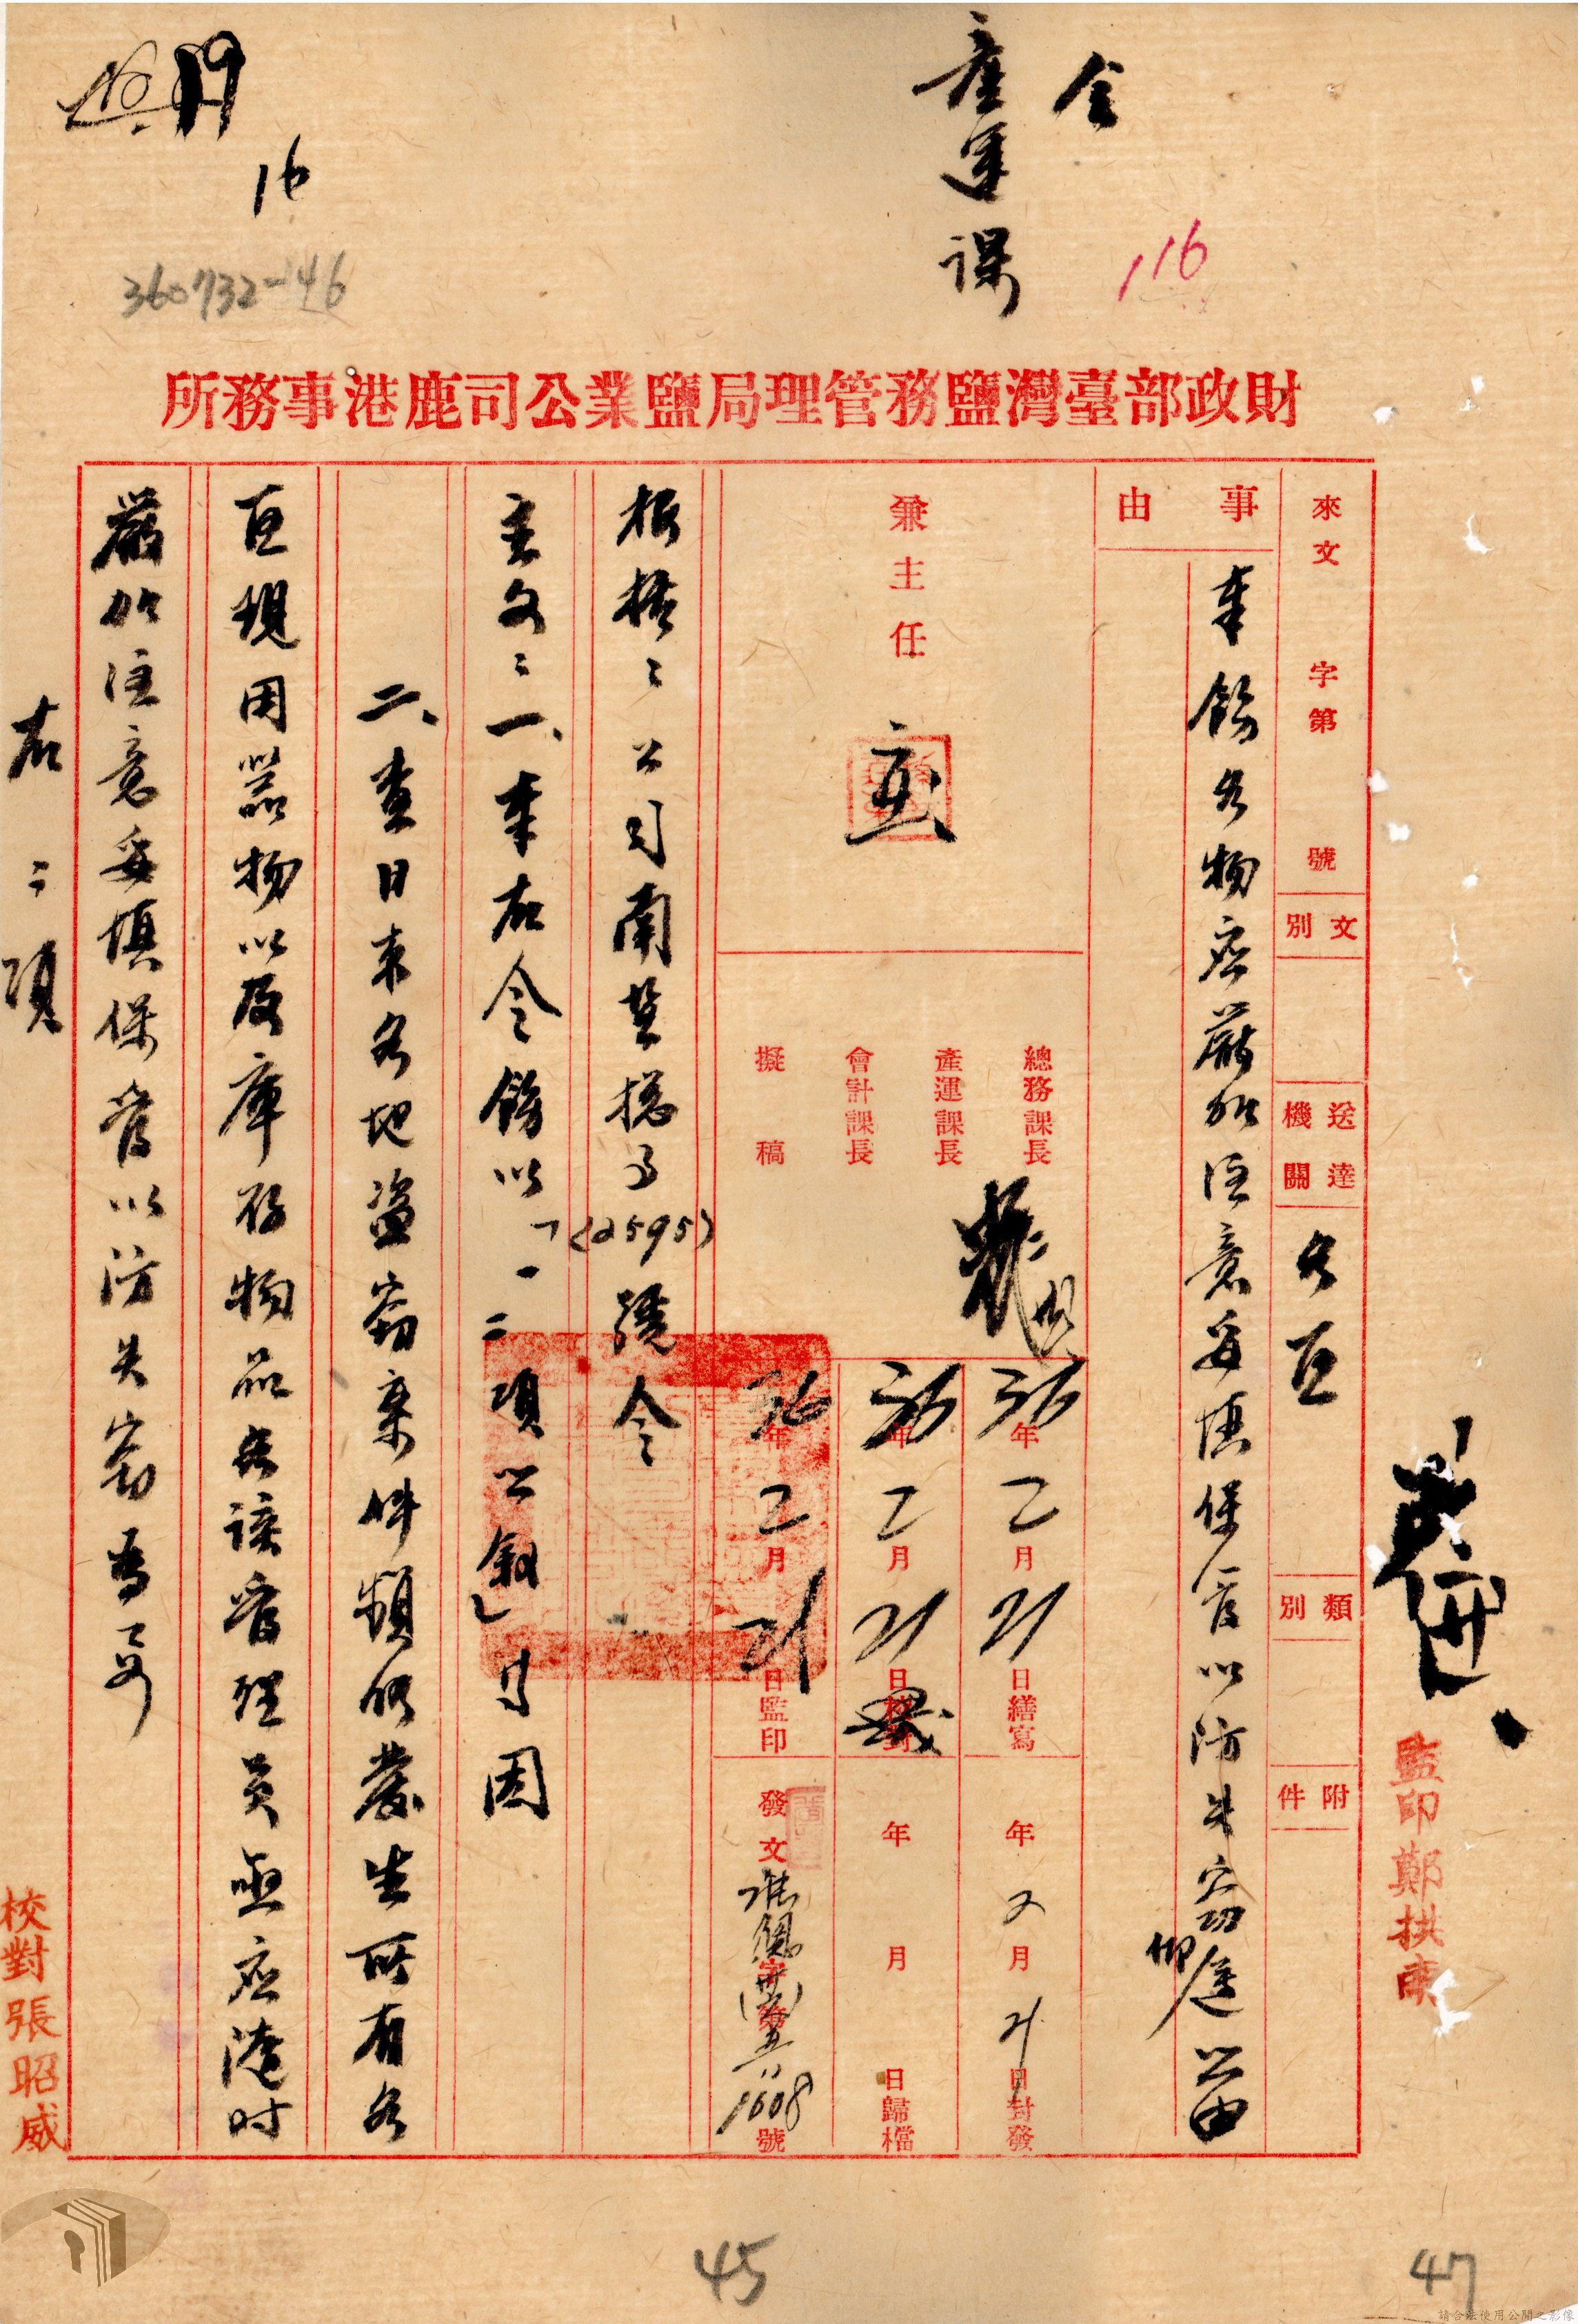 令
產運課
116
16
360732-46
財政部臺灣鹽務管理局鹽業公司鹿港事務所
來文 字第 號
文別
送達機關 各區
類別
附件
事由
奉飭各物應嚴加注意妥慎保管以防失竊仰遵照由
兼主任
總務課長
產運課長
會計課長
擬稿
36年2月21日繕寫
36年2月21日校對
36年2月21日監印
年2月21日封發
年 月 日歸檔
發文 字第 1608號
公司南鹽總子(2595)號令
主文:一、奉右令飭以「一二項公敘」等因
二、查日來各地盜竊案件頻仍發生所有各
區現用器物以及庫存物品各該管理員亟應隨時
嚴加注意妥慎保管以防失竊為要
右:項
監印鄭拱南
校對張昭威
45
47
請合法使用公開之影像